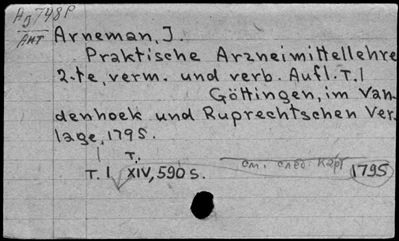 Ag 748P
Ант
Arneman, J.
Praktische Arzneimittellehre
2-te, verm. und verb. Aufl. T. I
Göttingen, im Van-
denhoek und Ruprechtschen Ver-
lage, 1795.
T.
T. I XIV, 590 s.
см. след. карт
1795